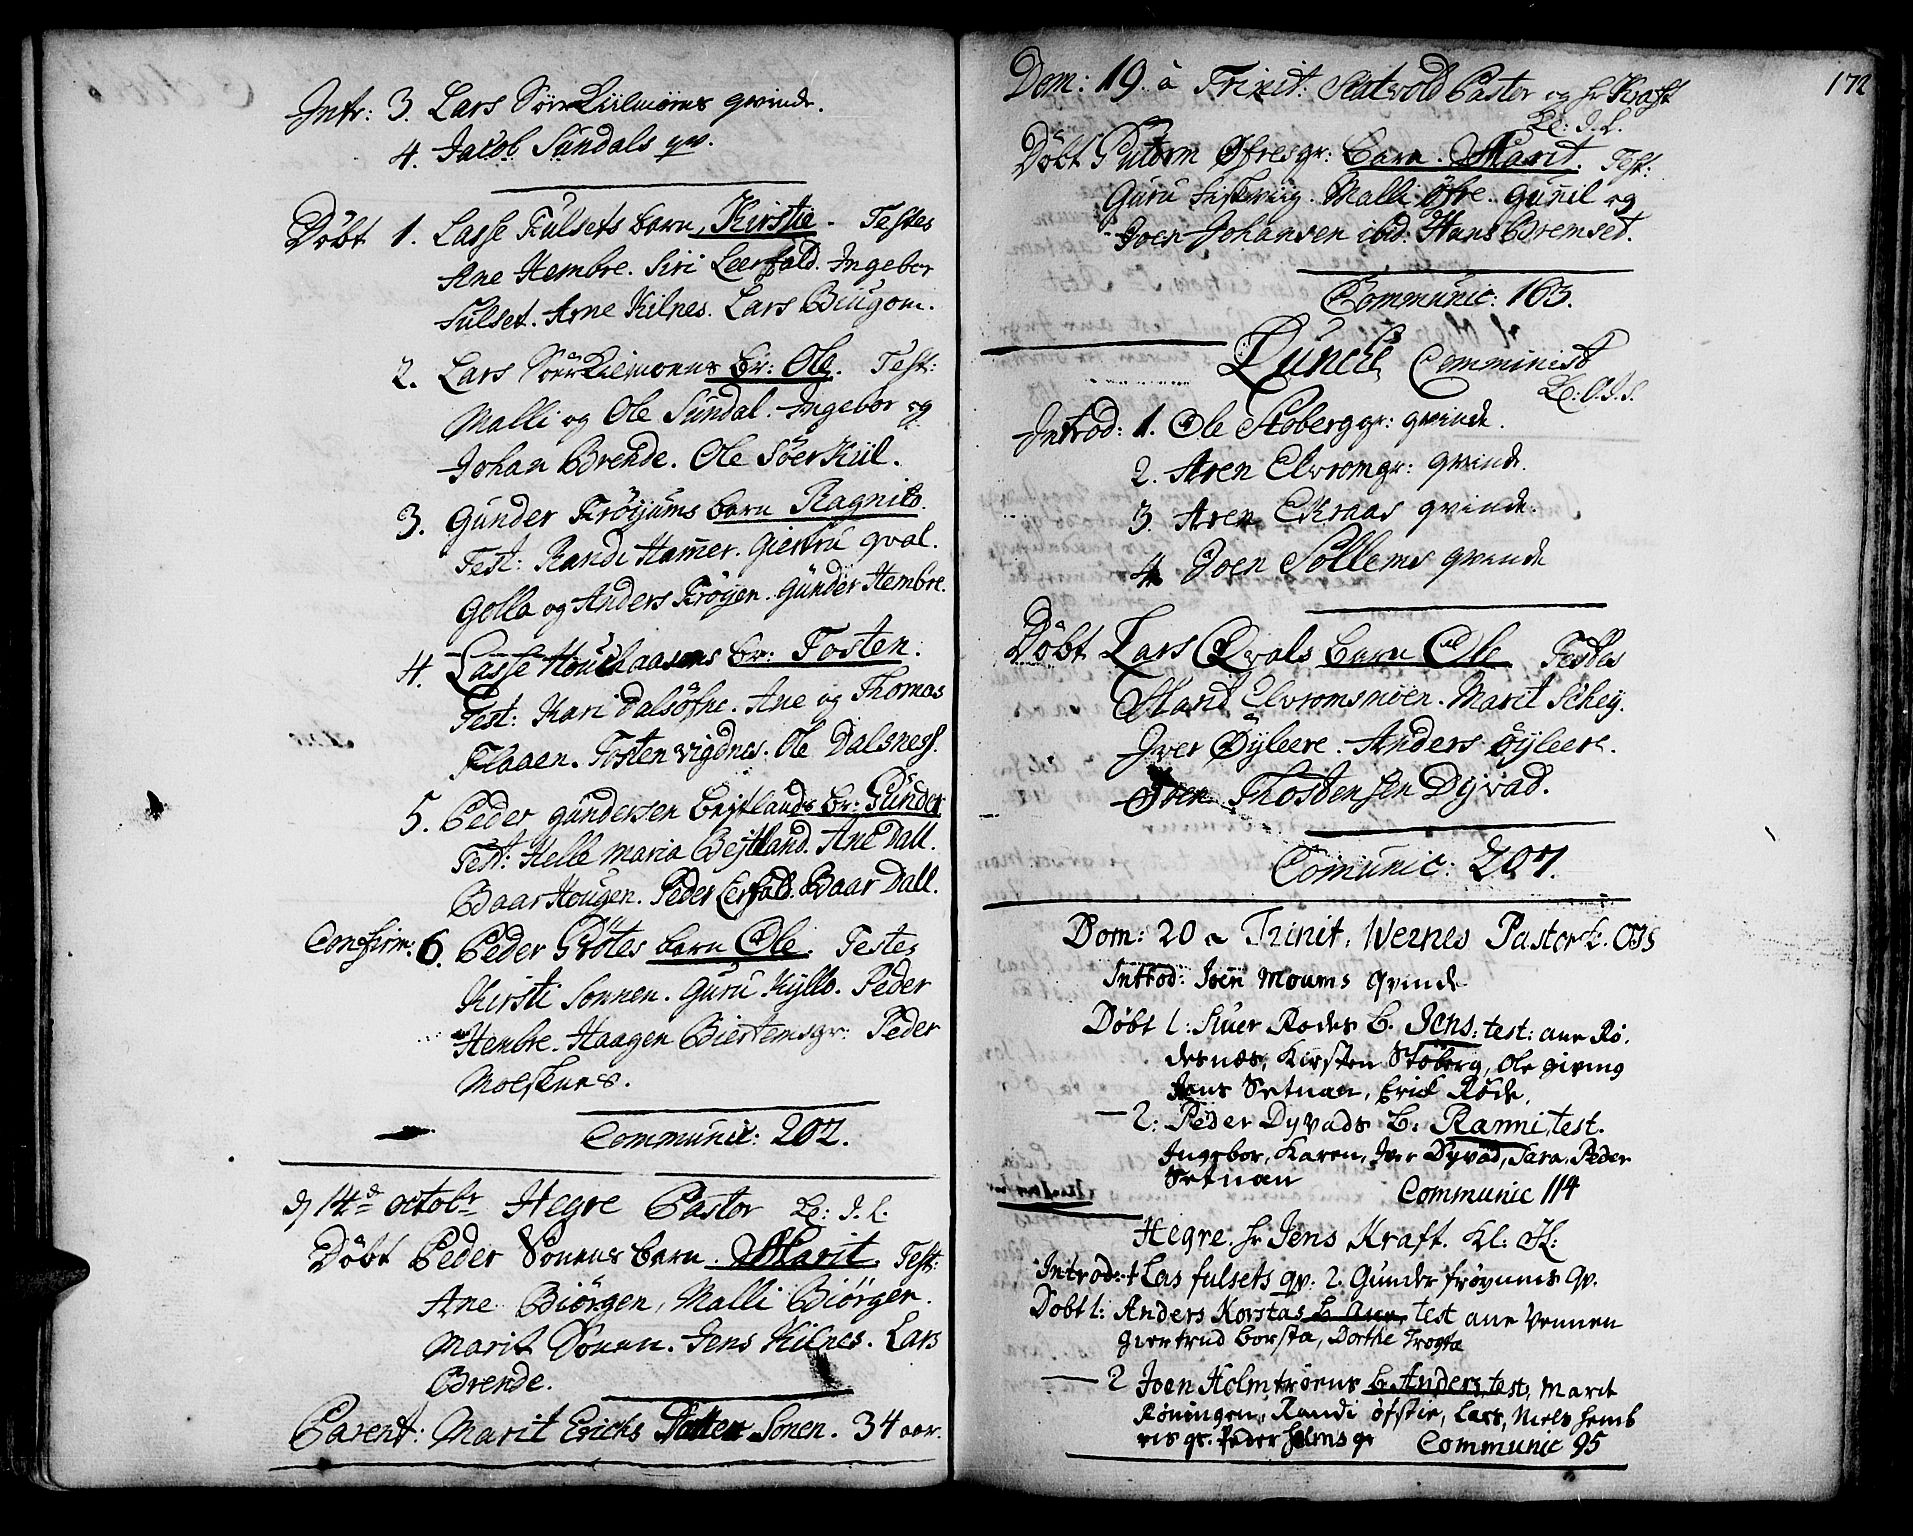 Intr: 3. Lars Sør Kiilmoens qvinde.
4. Jacob Sundals qv.
Döbt 1. Lasse Fulsets barn, Kirstie. Testes
Ane Hembre. Siri Leerfald. Ingebor
Fulset. Arne Kilnes. Lars Biugom.
2. Lars Sör Kilmoens br: Ole. Test:
Malli og Ole Sundal. Ingebor og
Johan Brende. Ole Söer Kiil.
3. Gunder Fröijums barn Ragnild.
Test: Randi Hamer. Giertru qval.
Golla og Anders Fröijen. Gunder Hembre.
4. Lasse Houghaasens br: Tosten.
Test: Kari Dalsöfre. Ane og Thomas
Flaaen. Tosten Vigdnes. Ole Dalsness.
5. Peder Gundersen Bejtlands br: Gunder
Test: Helle Maria Bejtland. Ane Dall.
Baar Hougen. Peder Lerfald. Baar Dall.
Confirm: 6. Peder Grötes barn Ole. Testes
Kirsti Sonnen. Guru Kyllo. Peder
Hembre. Haagen Biertemsgr: Peder
Moesknes.
Communic: 202.
d 14de octobr Hegre Pastor L: J. L.
Döbt Peder Sonens barn. Marit. Test:
Ane Biörgen, Malli Biörgen.
Marit Sonen. Jens Kilnes. Lars
Brende.
Parent: Marit Erichs Datter Sonen. 34 aar.
172
Dom: 19 à Trinit: Skatvold Pastor og hr Kraft
L: J. L.
Döbt Gutorm Øfresgr: barn. Marit. Test:
Guru Fiskviig. Malli Öfre. Gunil og
Joen Johansen ibid: Hans Bremset.
Communic: 163.
Eodem die Comminist
L: O.J.S.
Introd: 1. Ole Stoberggr: qvinde.
2. Aren Elvromgr: qvinde.
3. Aren Ekraas qvinde.
4 Joen Sollems qvinde
Döbt Lars Qvals barn Ole. Testes
Marit Elvromsmöen. Marit Schej.
Iver Öyleere. Anders öyleere.
Joen Thostensen Dyvad.
Comunic: 207.
Dom: 20 a Trinit. Wernes Pastor L. OJS
Introd: Joen Moums qvinde
Döbt 1: Siuer Rodes B. Jens: test: ane Rö-
desnæs, Kirsten Stöberg, Ole giving
Jens Setnan, Erick Röde.
— 2: Peder Dyvads B. Ranni, test.
Ingebor, Karen, Iver Dyvad, Sara. Peder
Setnan Communic 114
Hegre. hr Jens Kraft. Kl: JL:
Introd: 1 Las fulsets qv. 2. Gunder fröyums Qv.
Döbt 1: Anders Korstas B Ane, test ane Vennen
Giertrud borsta, Dorthe Trogta
— 2 Joen Holmtröens B Anders, test, Marit
Röningen, Randi öfstie, Lars, Niels hemb
res gr. Peder holms gr Communic 95